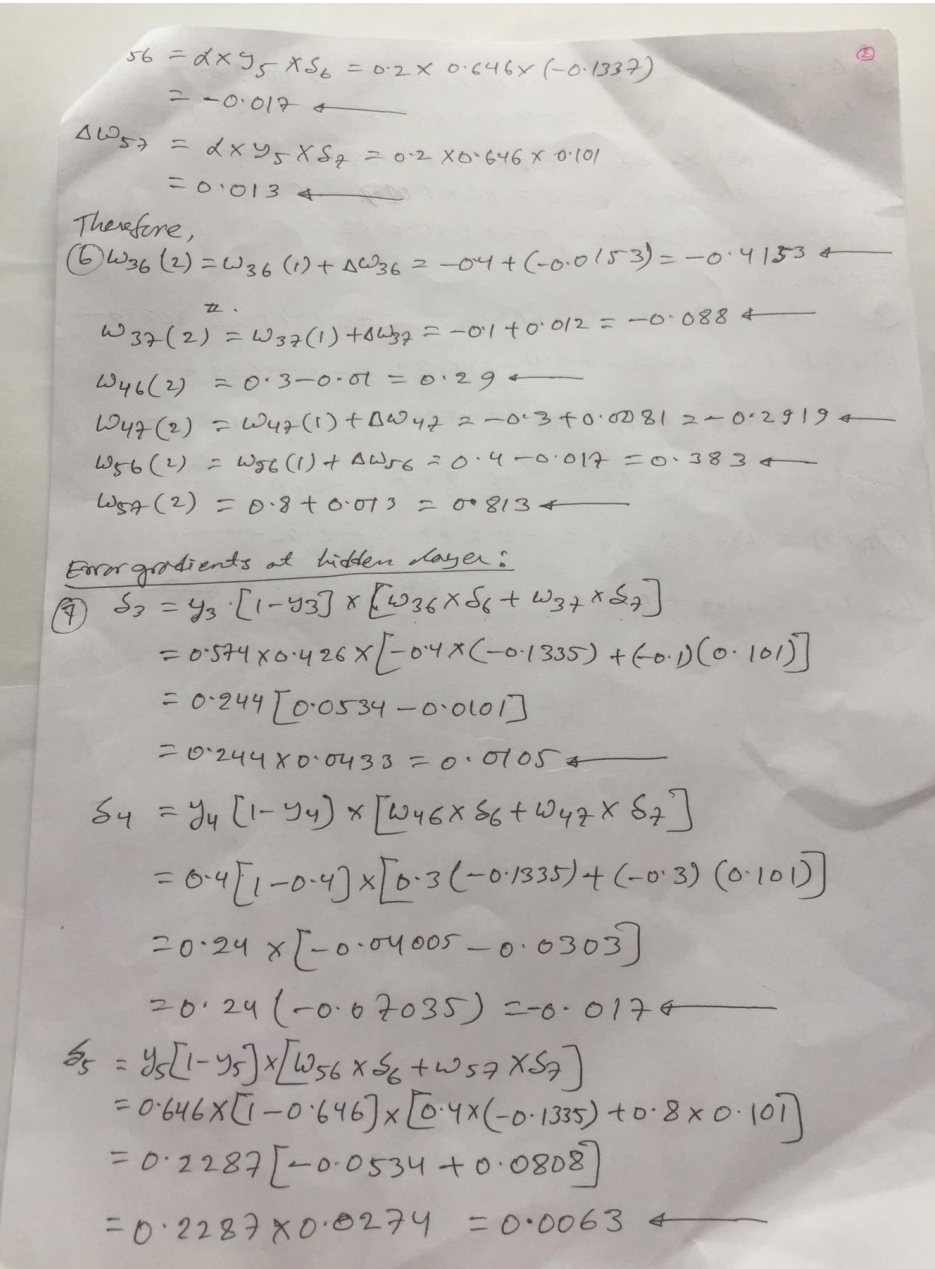 ②
56 = α x y5 x δ6 = 0.2 x 0.646 x (-0.1337)
= -0.017 ←
Δw57 = α x y5 x δ7 = 0.2 x 0.646 x 0.101
= 0.013 ←
Therefore,
⑥ w36 (2) = w36 (1) + Δw36 = -04 + (-0.0153) = -0.4153 ←
w37(2) = w37(1) + Δw37 = -0.1 + 0.012 = -0.088 ←
w46(2) = 0.3 - 0.01 = 0.29 ←
w47(2) = w47(1) + Δw47 = -0.3 + 0.0081 = -0.2919 ←
w56(2) = w56(1) + Δw56 = 0.4 - 0.017 = 0.383 ←
w57(2) = 0.8 + 0.013 = 0.813 ←
Error gradients at hidden layer:
⑦ δ3 = y3 · [1-y3] x [w36 x δ6 + w37 x δ7]
= 0.574 x 0.426 x [-0.4 x (-0.1335) + (-0.1)(0.101)]
= 0.244 [0.0534 - 0.0101]
= 0.244 x 0.0433 = 0.0105 ←
δ4 = y4 [1-y4) x [w46 x δ6 + w47 x δ7]
= 0.4 [1-0.4] x [0.3 (-0.1335) + (-0.3) (0.101)]
= 0.24 x [-0.04005 - 0.0303]
= 0.24 (-0.07035) = -0.017 ←
δ5 = y5 [1-y5] x [w56 x δ6 + w57 x δ7]
= 0.646 x [1-0.646] x [0.4 x (-0.1335) + 0.8 x 0.101]
= 0.2287 [-0.0534 + 0.0808]
= 0.2287 x 0.0274 = 0.0063 ←